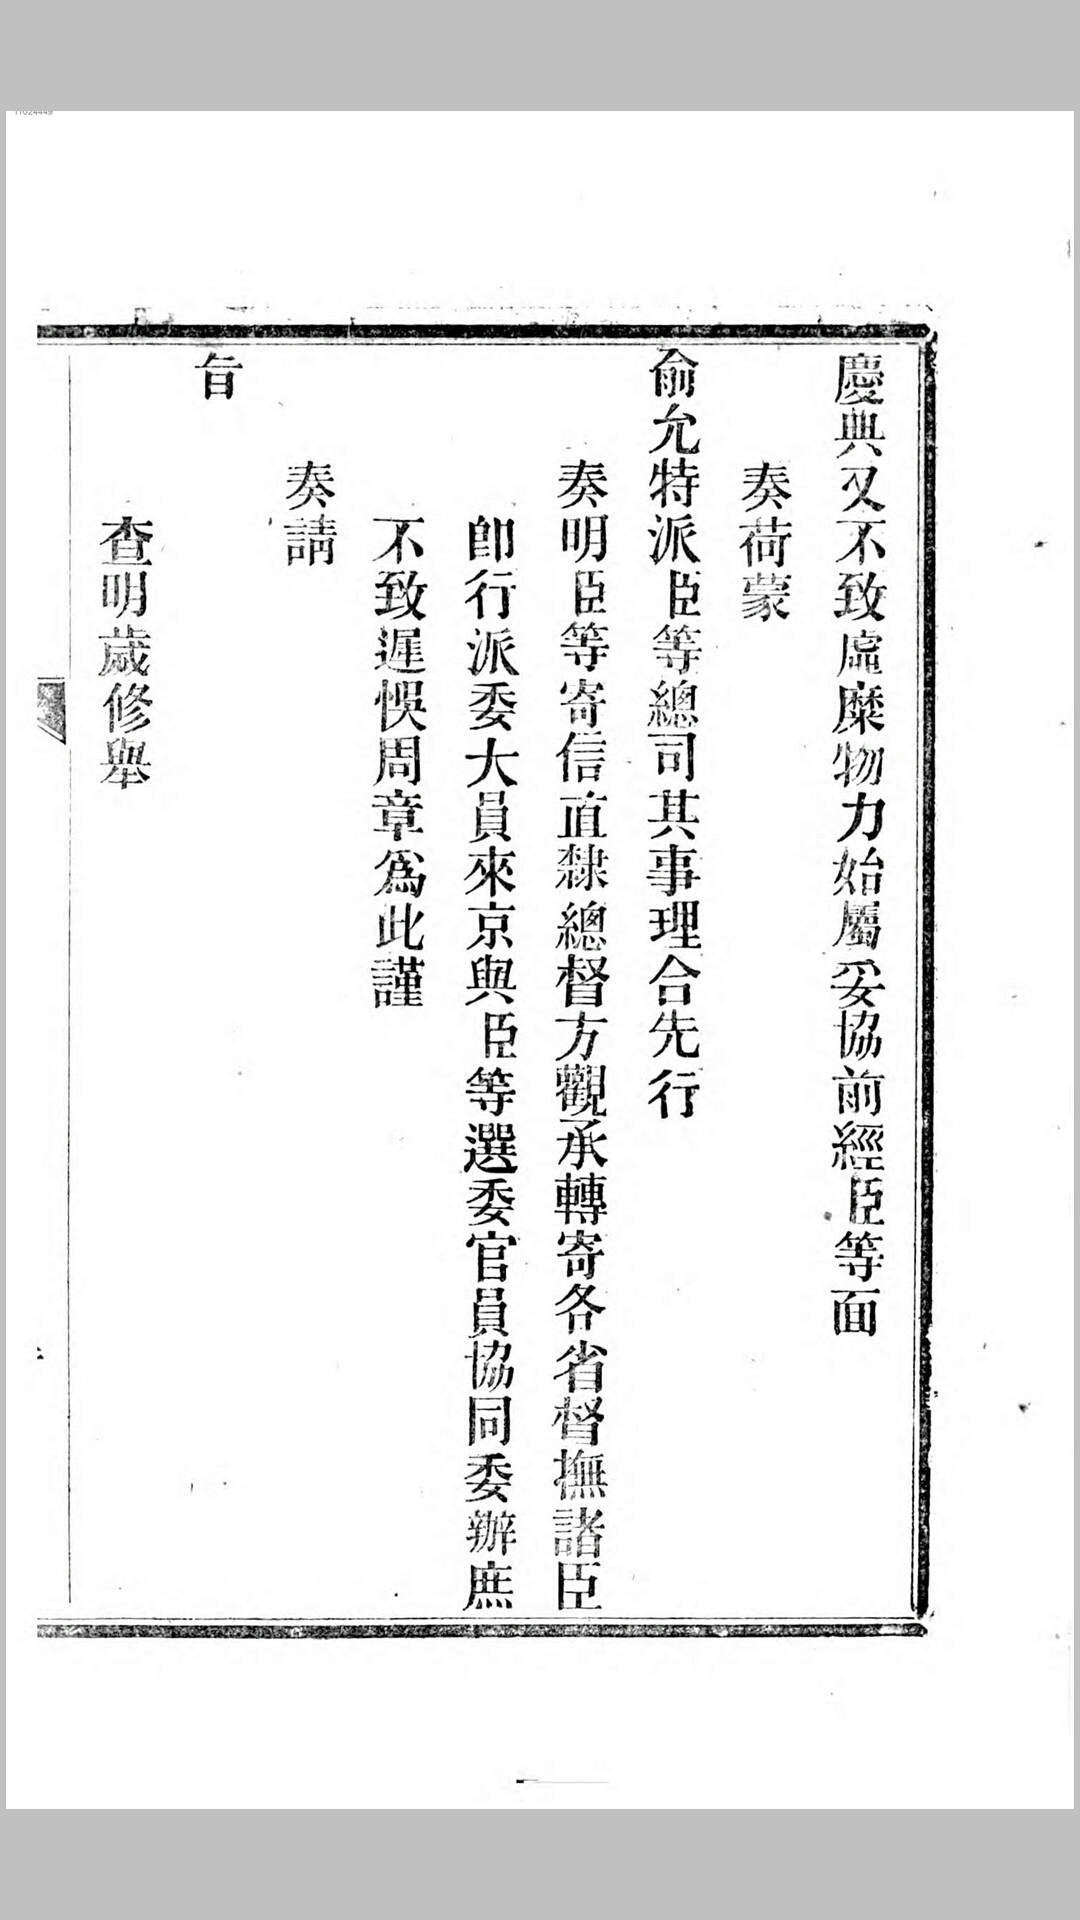 慶典又不致虛糜物力始屬妥協前經臣等面
奏荷蒙
俞允特派臣等總司其事理合先行
奏明臣等寄信直隸總督方觀承轉寄各省督撫諸臣
卽行派委大員來京與臣等選委官員協同委辦庶
不致遲悞周章爲此謹
奏請
旨
查明歲修舉